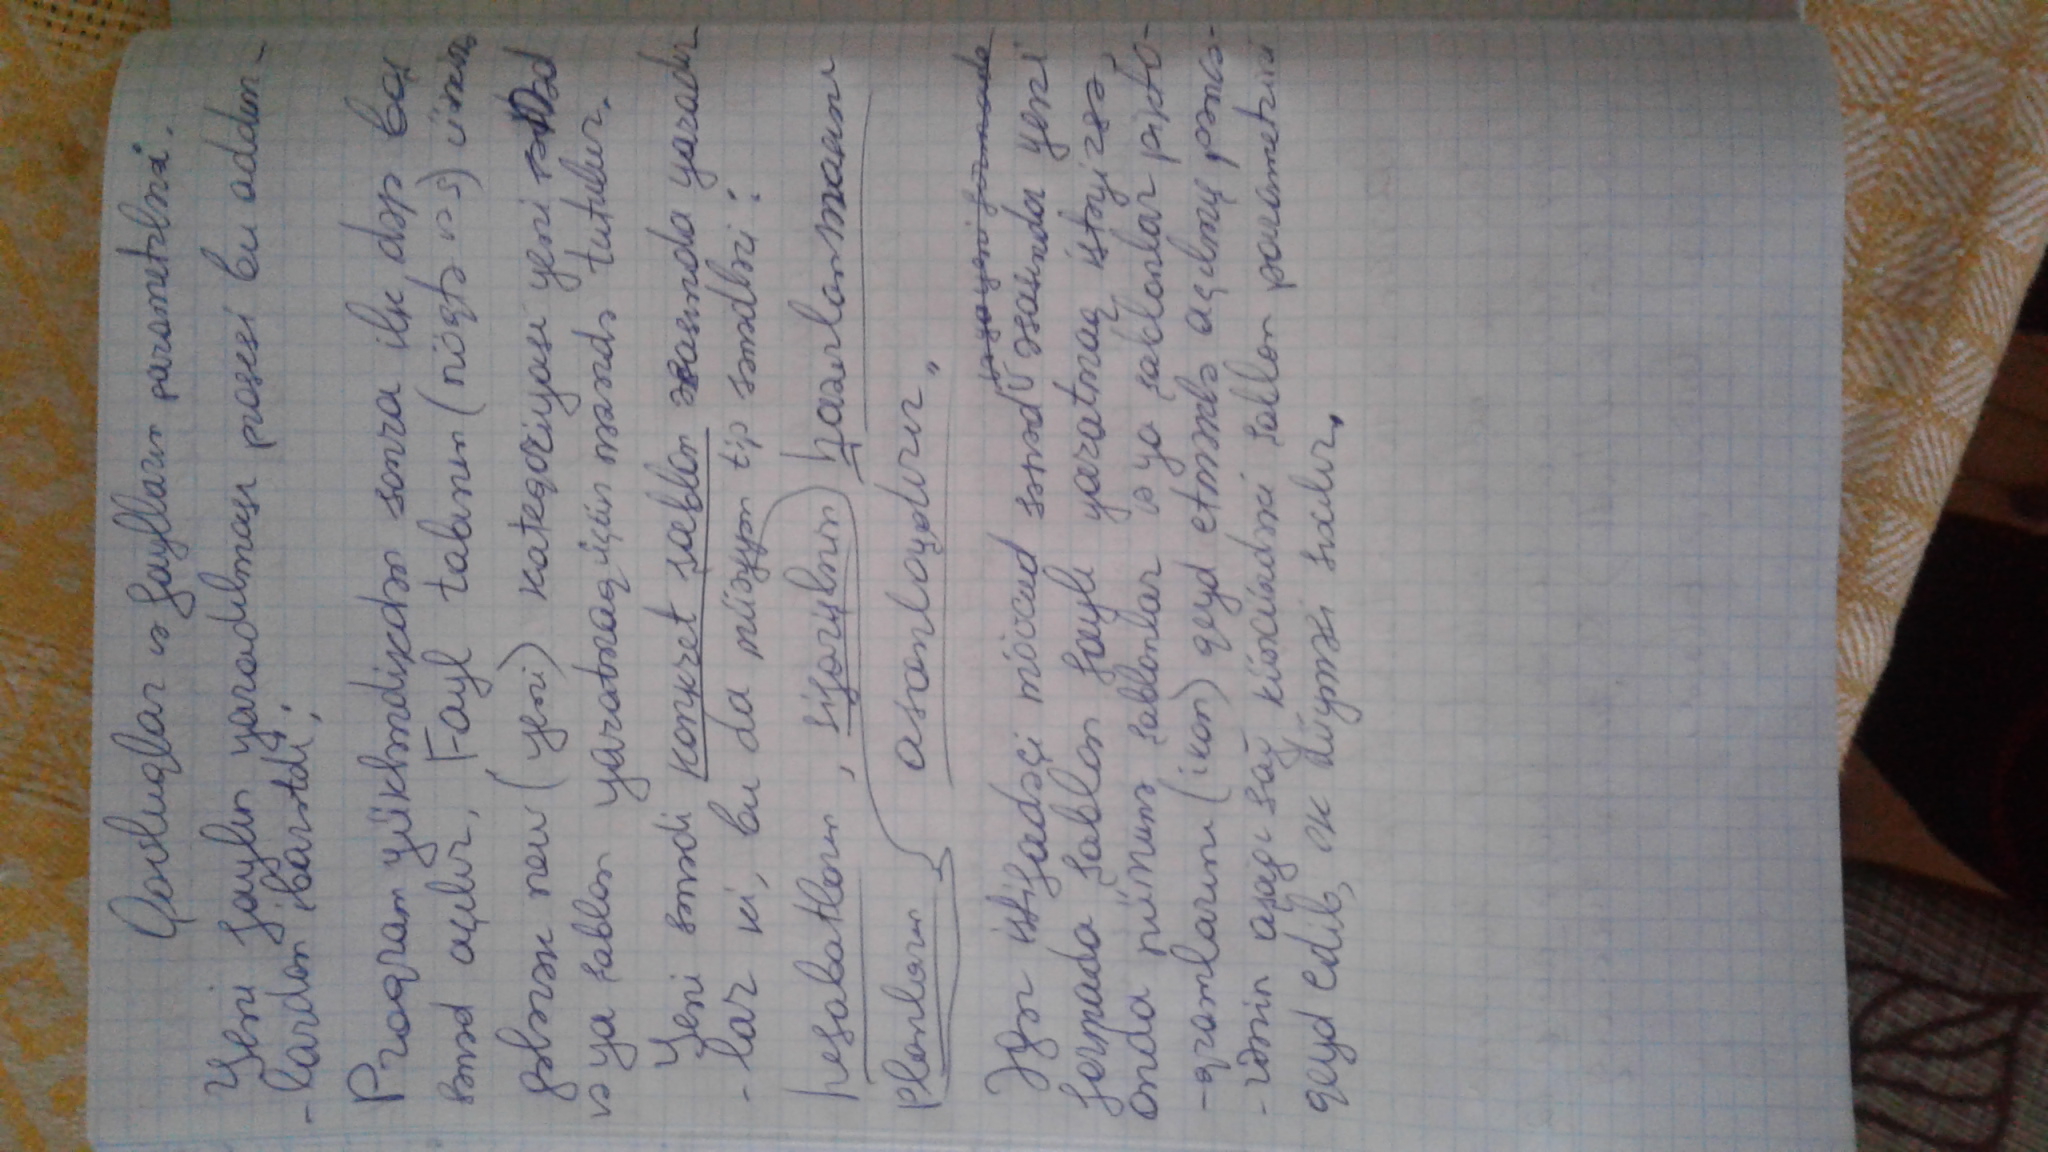 Qovluqlar və faylların parametrləri.
Yeni faylın yaradılması prosesi bu addım-
-lardan ibarətdi;
Proqram yükləndikdən sonra ilk dəfə boş
sənəd açılır, Fayl tabının (nöqtə və s) üzərinə
gələrək new (yeni) kateqoriyası yeni sənəd
və ya şablon yaratmaq üçün nəzərdə tutulur.
Yeni sənədi konkret şablon əsasında yaradır-
-lar ki, bu da müəyyən tip sənədləri:
hesabatların, sifarişlərin hazırlanmasını
planların asanlaşdırır.
və ya yeni formada
Əgər istifadəçi mövcud sənəd əsasında yeni
formada şablon faylı yaratmaq istəyirsə,
onda nümunə şablonlar və ya şablonlar pikto-
-qramlarını (ikon) qeyd etməklə açılmış pəncə-
-rənin aşağı sağ küncündəki şablon parametrini
qeyd edib, ok düyməsi sıxılır.